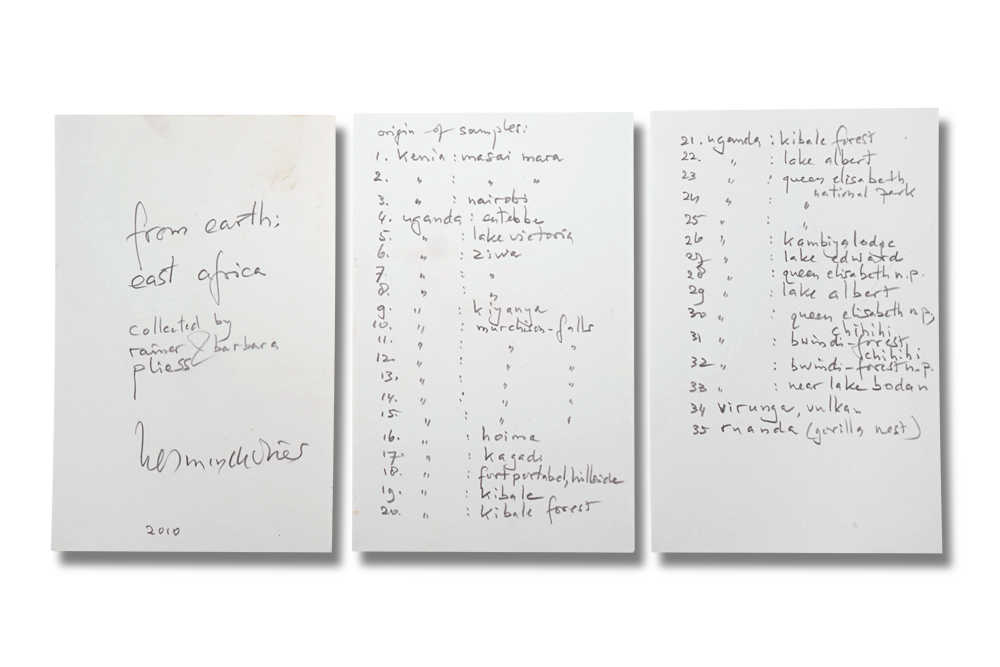 from earth:
east africa
collected by
rainer & barbara
pliess
herman de vries
2010
origin of samples:
1. kenia : masai mara
2. " : " "
3. " : nairobi
4. uganda : entebbe
5. " : lake victoria
6. " : ziwa
7. " : "
8. " : "
9. " : kiyanya
10. " : murchison-falls
11. " : " "
12. " : " "
13. " : " "
14. " : " "
15 " : " "
16. " : hoima
17. " : kagadi
18. " : fort portabel, hillside
19. " : kibale
20. " : kibale forest
21. uganda : kibale forest
22. " : lake albert
23 " : queen elisabeth
24 " : national park
25 " : "
26 " : kambiyalodge
27 " : lake edward
28 " : queen elisabeth n.p.
29 " : lake albert
30 " : queen elisabeth n.p,
chihihi
31 " : bwindi-forest
chihihi
32 " : bwindi-forest n.p.
33 " : near lake bodan
34 virunga, vulkan
35 ruanda (gorilla nest)